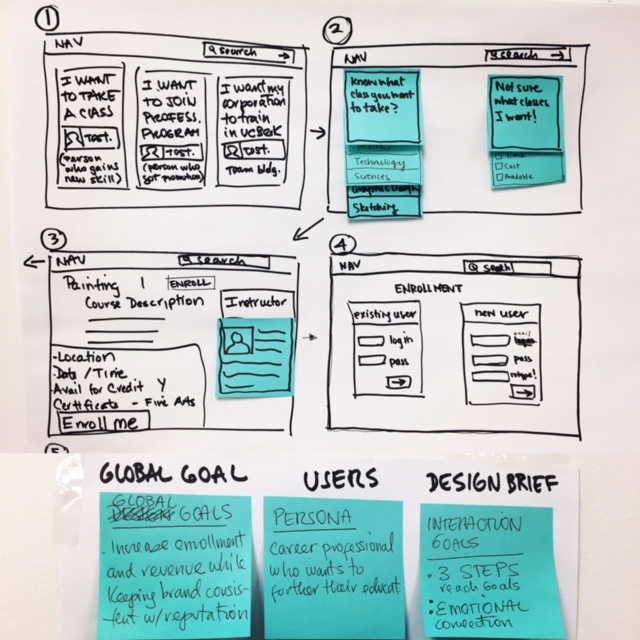 1
NAV
search →
I WANT
TO TAKE
A CLASS
TEST.
(Person
who gains
new skill)
I WANT
TO JOIN
PROFESS.
PROGRAM
TEST.
(person who
got promotion)
I want my
corporation
to train
in UCB2K
TEST.
Team bldg.
2
NAV
search →
Know what
class you want
to take?
Technology
Sciences
Sketching
Not sure
what classes
I want!
Time
Cost
Available
3
NAV
search
Painting 1
ENROLL
Course Description
Instructor
-Location
-Date / Time
-Avail for Credit Y
Certificate - Fine Arts
Enroll me
4
NAV
search
ENROLLMENT
existing user
log in
pass
→
new user
email
pass
retype!
→
GLOBAL GOAL
GLOBAL
GOALS
- Increase enrollment
and revenue while
keeping brand consis-
tent w/reputation
USERS
PERSONA
career professional
who wants to
further their educat
DESIGN BRIEF
INTERACTION
GOALS
• 3 STEPS
reach goals
• EMOTIONAL
connection